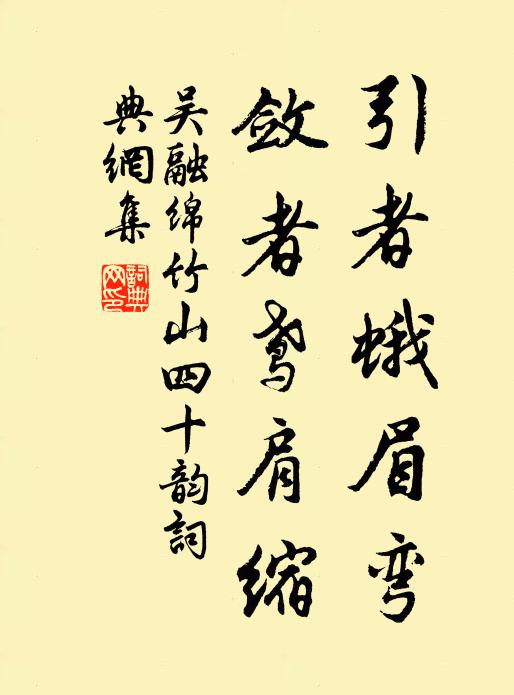 引者蛾眉弯
敛者鸢肩缩
吴融绵竹山四十韵詞
典網集
詞典网印